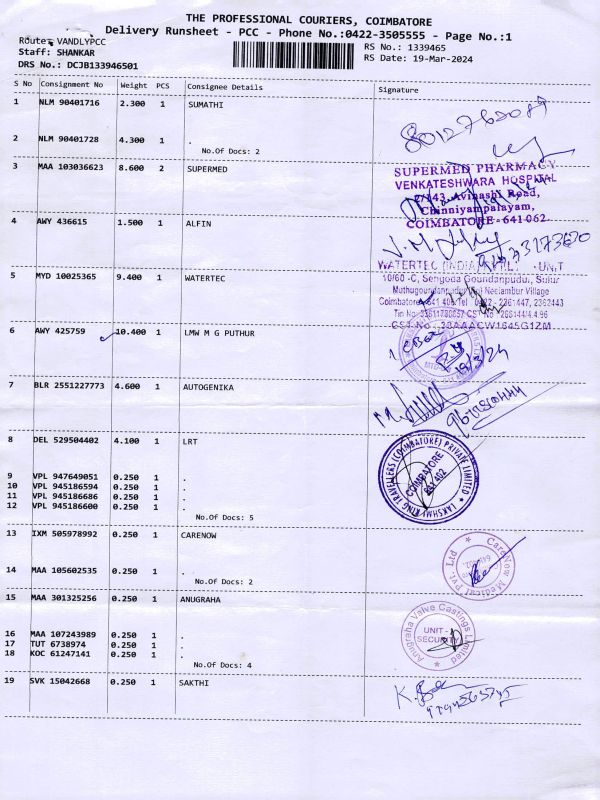 THE PROFESSIONAL COURIERS, COIMBATORE
Delivery Runsheet - PCC - Phone No.:0422-3505555 - Page No.:1
Route: VANDLYPCC
Staff: SHANKAR
DRS No.: DCJB133946501
RS No.: 1339465
RS Date: 19-Mar-2024
S No Consignment No Weight PCS Consignee Details Signature
1 NLM 90401716 2.300 1 SUMATHI
8012762087
2 NLM 90401728 4.300 1 .
No.Of Docs: 2
3 MAA 103036623 8.600 2 SUPERMED
SUPERMED PHARMACY
VENKATESHWARA HOSPITAL
2/143, Avinashi Road,
Chinniyampalayam,
COIMBATORE - 641 062.
4 AWY 436615 1.500 1 ALFIN
5 MYD 10025365 9.400 1 WATERTEC
WATERTEC (INDIA) PVT. L UNIT
10/60 -C, Sengoda Goundanpudur, Sulur
Neelambur Village
Coimbatore 641 406 Tel 0422 - 2361447, 2362443
6 AWY 425759 10.400 1 LMW M G PUTHUR
1 CBox
19/3/24
7 BLR 2551227773 4.600 1 AUTOGENIKA
8 DEL 529504402 4.100 1 LRT
LAKSHMY RING TRAVELLERS (COIMBATORE) PRIVATE LIMITED
COIMBATORE
641 402
9 VPL 947649051 0.250 1 .
10 VPL 945186594 0.250 1 .
11 VPL 945186686 0.250 1 .
12 VPL 945186600 0.250 1 .
No.Of Docs: 5
13 IXM 505978992 0.250 1 CARENOW
CareNow Medical Pvt. Ltd
14 MAA 105602535 0.250 1 .
No.Of Docs: 2
15 MAA 301325256 0.250 1 ANUGRAHA
Anugraha Valve Castings Limited
UNIT -
SECURITY
16 MAA 107243989 0.250 1 .
17 TUT 6738974 0.250 1 .
18 KOC 61247141 0.250 1 .
No.Of Docs: 4
19 SVK 15042668 0.250 1 SAKTHI